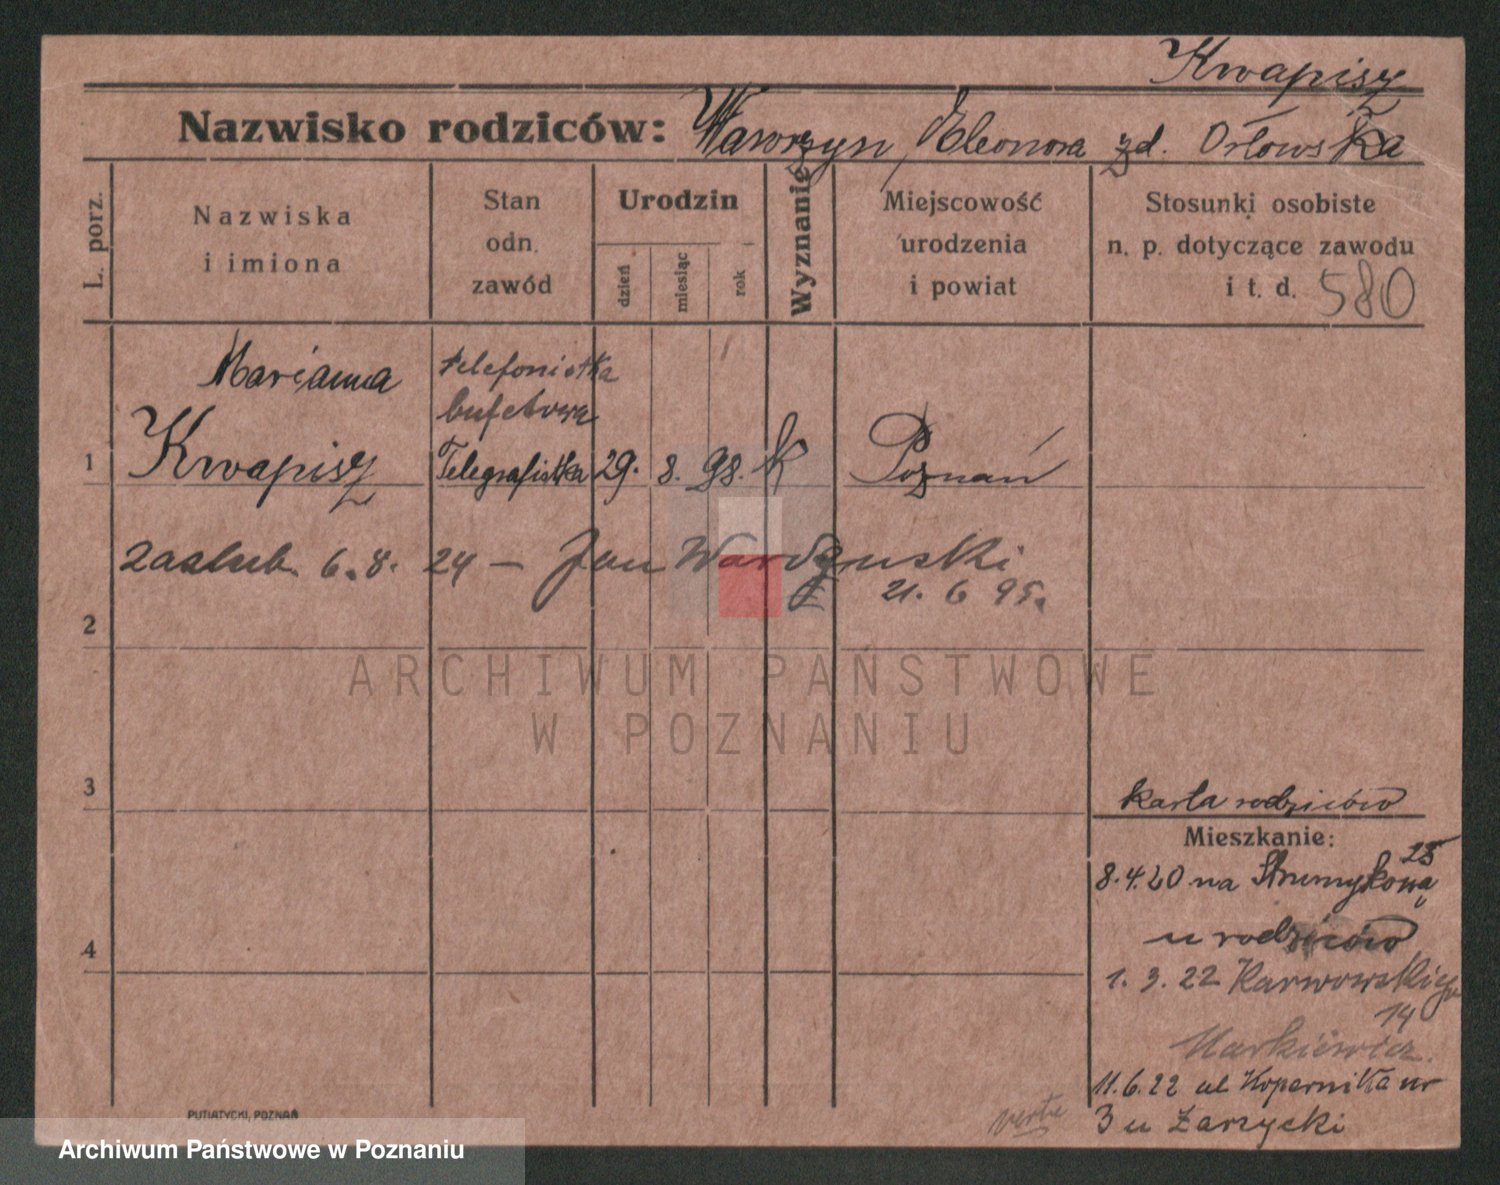 Kwapisz
Nazwisko rodziców: Wawrzyn / Eleonora zd. Orłowska
L. porz.
Nazwiska
i imiona
Stan
odn.
zawód
Urodzin
dzień
miesiąc
rok
Wyznanie
Miejscowość
urodzenia
i powiat
Stosunki osobiste
n. p. dotyczące zawodu
i t. d. 580
Marianna
telefonistka
bufetowa
1 Kwapisz Telegrafistka 29. 8. 98. k Poznań
zaślub. 6.8. 24 – Jan Wardzyński
21. 6 95.
2
ARCHIWUM PAŃSTWOWE
W POZNANIU
3
karta rodziców
Mieszkanie:
25
8.4.20 na Strumykową
u rodziców
4
1. 3. 22 Karwowskiego
14
Markiewicz.
11.6.22 ul Kopernika nr
3 u Zarzycki
verte
PUTIATYCKI, POZNAŃ
Archiwum Państwowe w Poznaniu